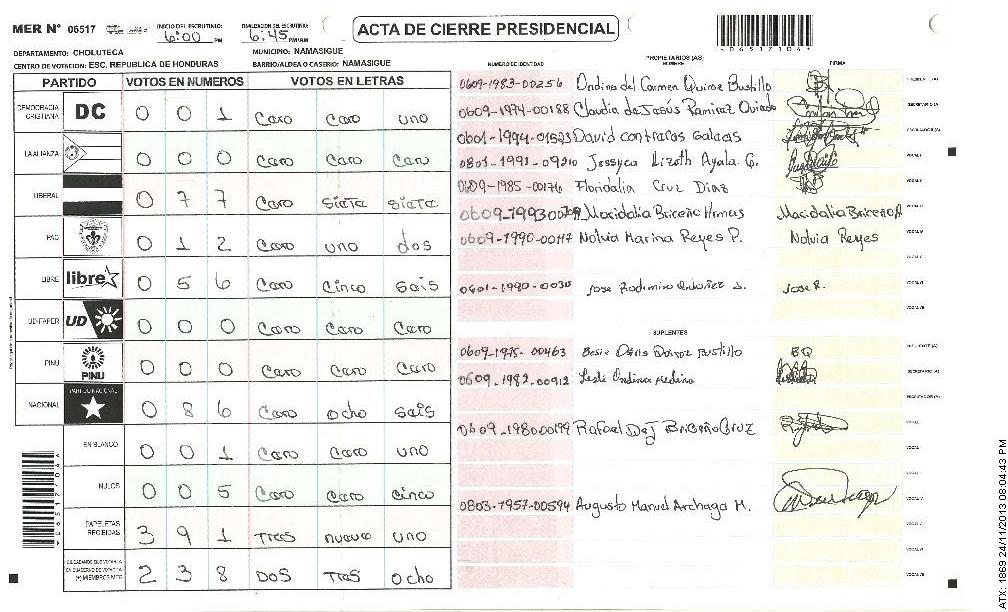 MER N° 06517 INICIO DEL ESCRUTINIO: 6:00 PM FINALIZACION DEL ESCRUTINIO: 6:45 PM/AM
ACTA DE CIERRE PRESIDENCIAL
DEPARTAMENTO: CHOLUTECA MUNICIPIO: NAMASIGUE
CENTRO DE VOTACION: ESC. REPUBLICA DE HONDURAS BARRIO/ALDEA O CASERIO: NAMASIGUE
PARTIDO VOTOS EN NUMEROS VOTOS EN LETRAS
DEMOCRACIA CRISTIANA DC 0 0 1 Cero Cero uno
LA ALIANZA 0 0 0 Cero Cero Cero
LIBERAL 0 7 7 Cero Siete Siete
PAC 0 1 2 Cero uno dos
LIBRE libre 0 5 6 Cero Cinco Seis
UD-FAPER UD 0 0 0 Cero Cero Cero
PINU PINU 0 0 0 Cero Cero Cero
NACIONAL PARTIDO NACIONAL 0 8 6 Cero Ocho Seis
EN BLANCO 0 0 1 Cero Cero uno
NULOS 0 0 5 Cero Cero Cinco
PAPELETAS RECIBIDAS 3 9 1 Tres nueve uno
2 3 8 DOS Tres Ocho
PROPIETARIOS (AS)
NUMERO DE IDENTIDAD NOMBRE FIRMA
0609-1983-00256 Ondina del Carmen Quiroz Bustillo
0609-1974-00188 Claudia de Jesús Ramirez Oviedo
0601-1994-01523 David contreras Galeas
0801-1991-09210 Jessyca Lizeth Ayala G.
0609-1985-00176 Floridalia Cruz Diaz
Macidalia Briceño
0609-1990-00117 Nolvia Marina Reyes P. Nolvia Reyes
0601-1990-0030 Jose R.
SUPLENTES
0609-1975-00463 Bustillo BQ
0609-1982-00912 Lesli Ondina Medina
0609-1980-00199 Rafael De J Briceño Cruz
0803-1957-00594 Augusto Manuel Archaga M.
ATX: 1869 24/11/2013 08:04:43 PM